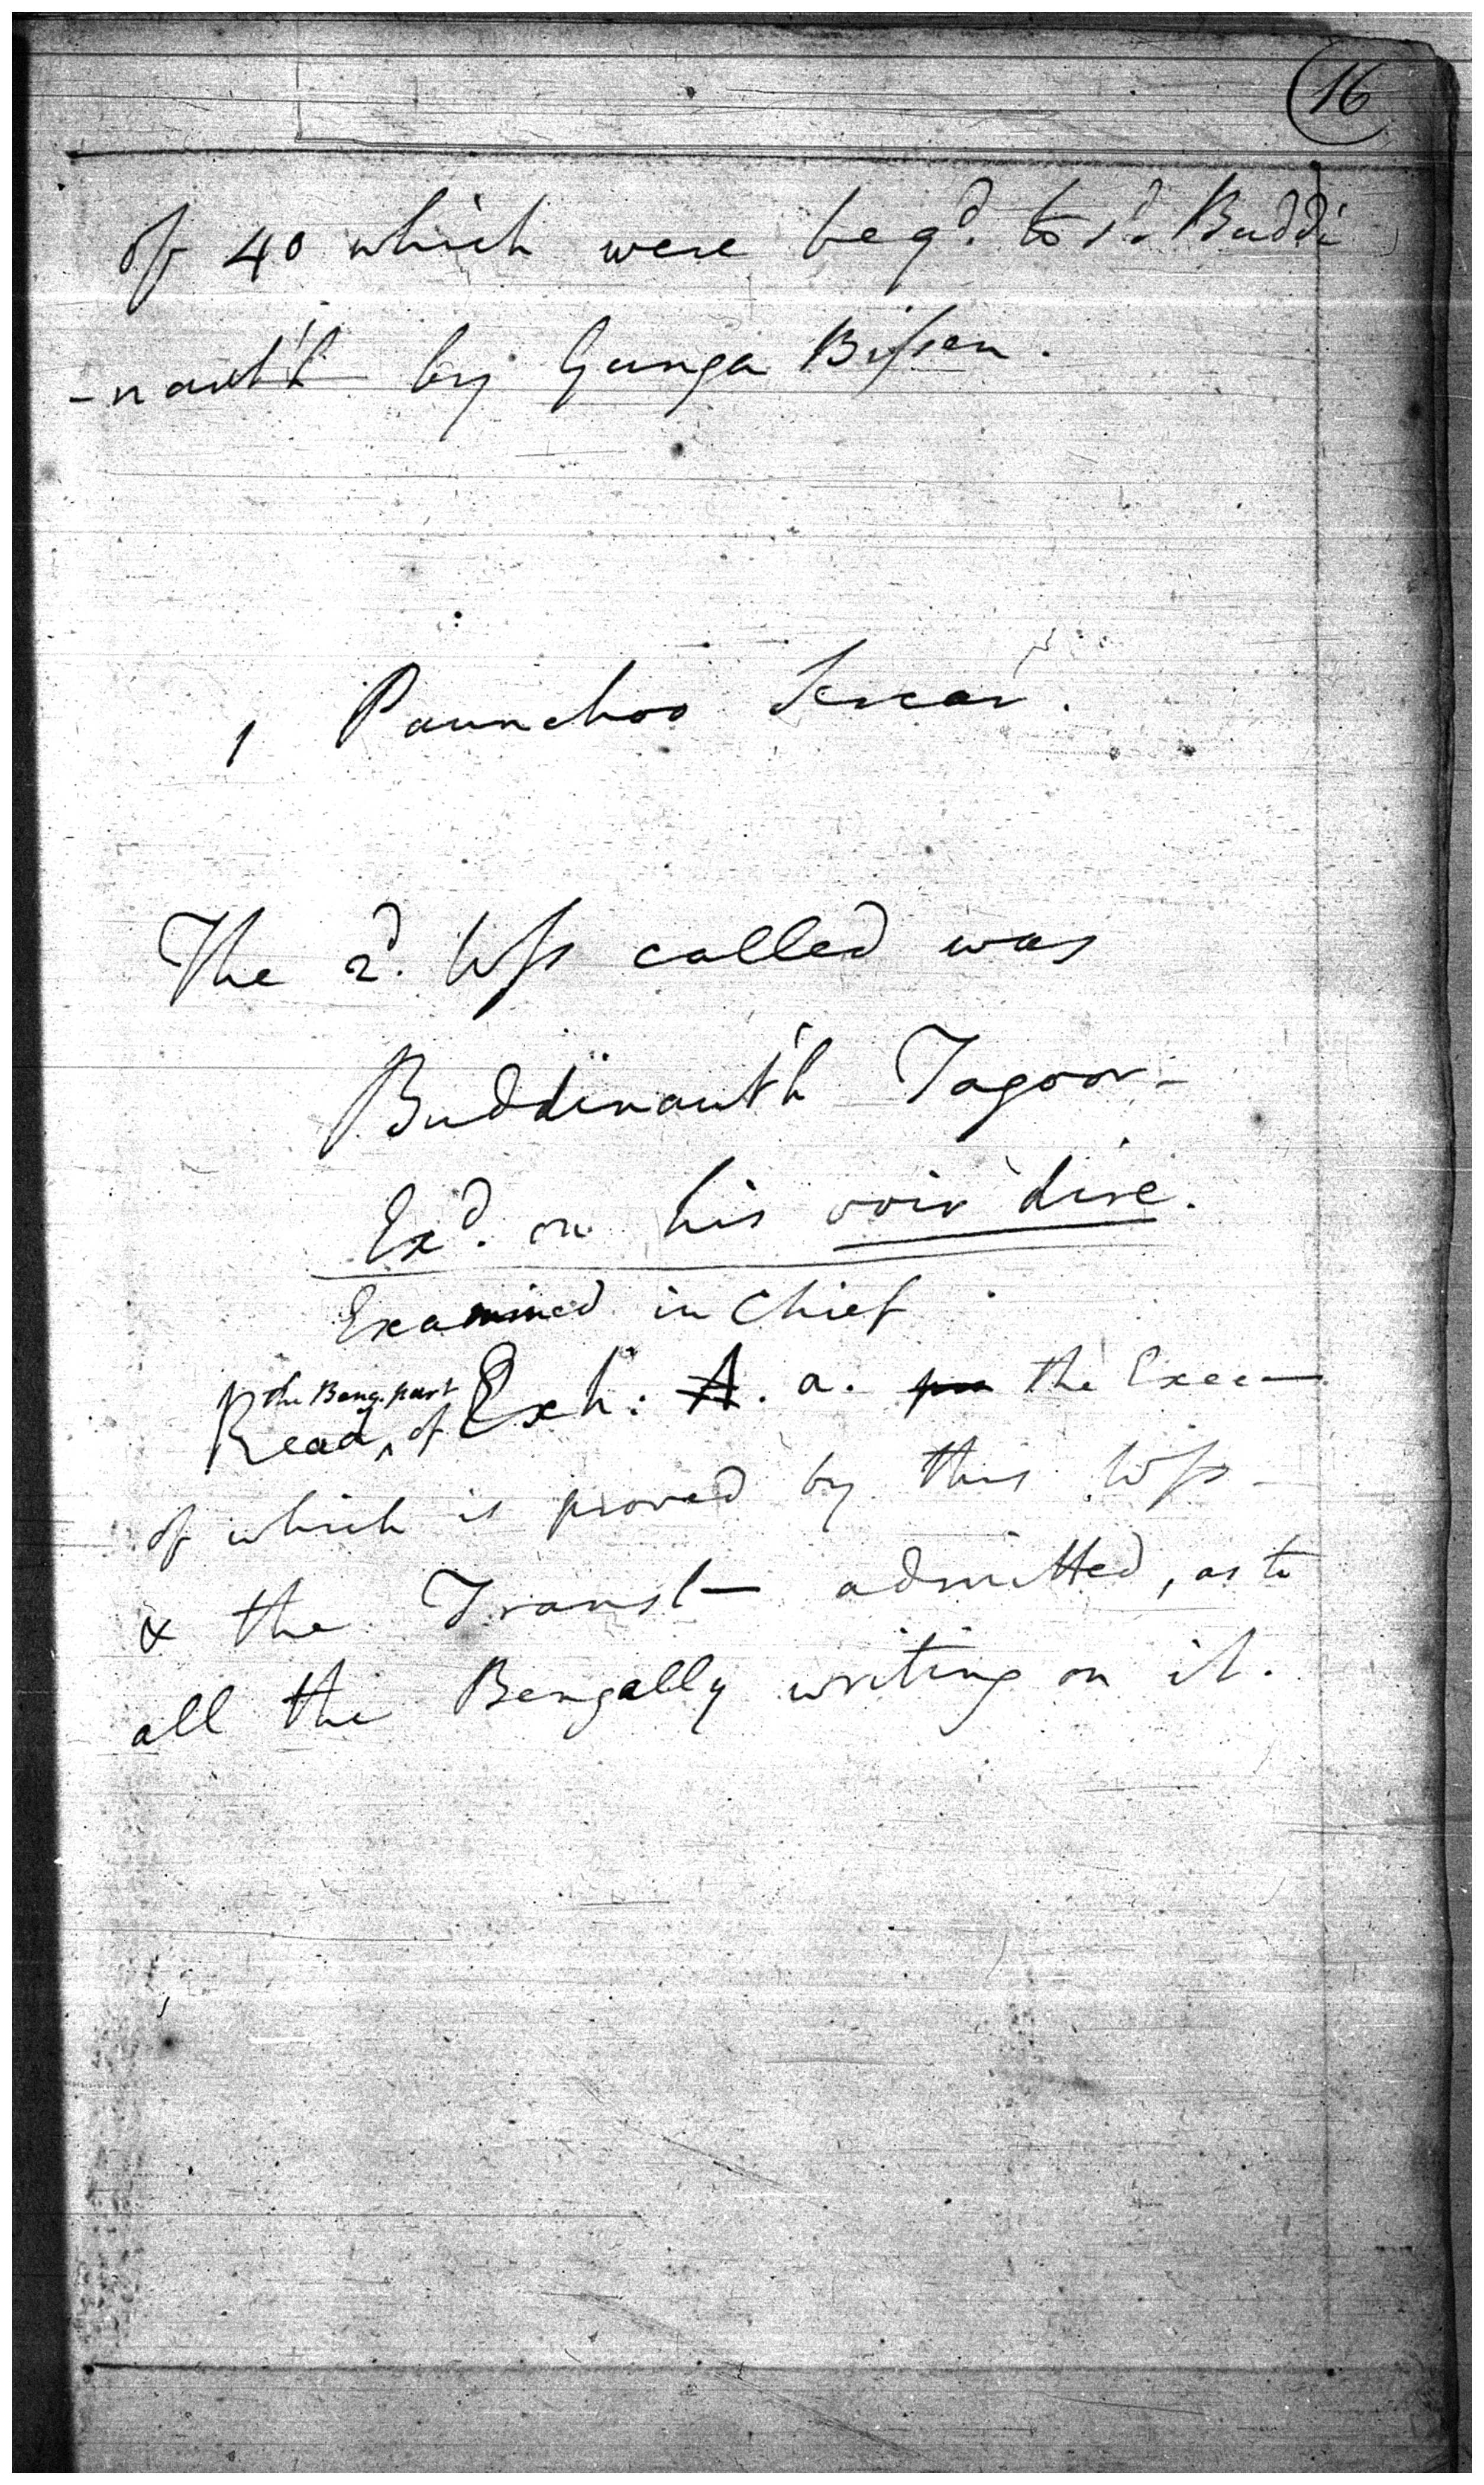 16
of 40 which were beq.d to s.d Buddi
-naut'h by Gunga Bissen.
1 Paunchoo Sircar.
The 2.d Wss called was
Buddinaut'h Tagoor-
Ex.d on his voir dire.
Examined in Chief
the Beng. part
Read of Exh: A. a. the Exec—
of which is proved by this Wss-
& the Transl— admitted, as to
all the Bengally writing on it.